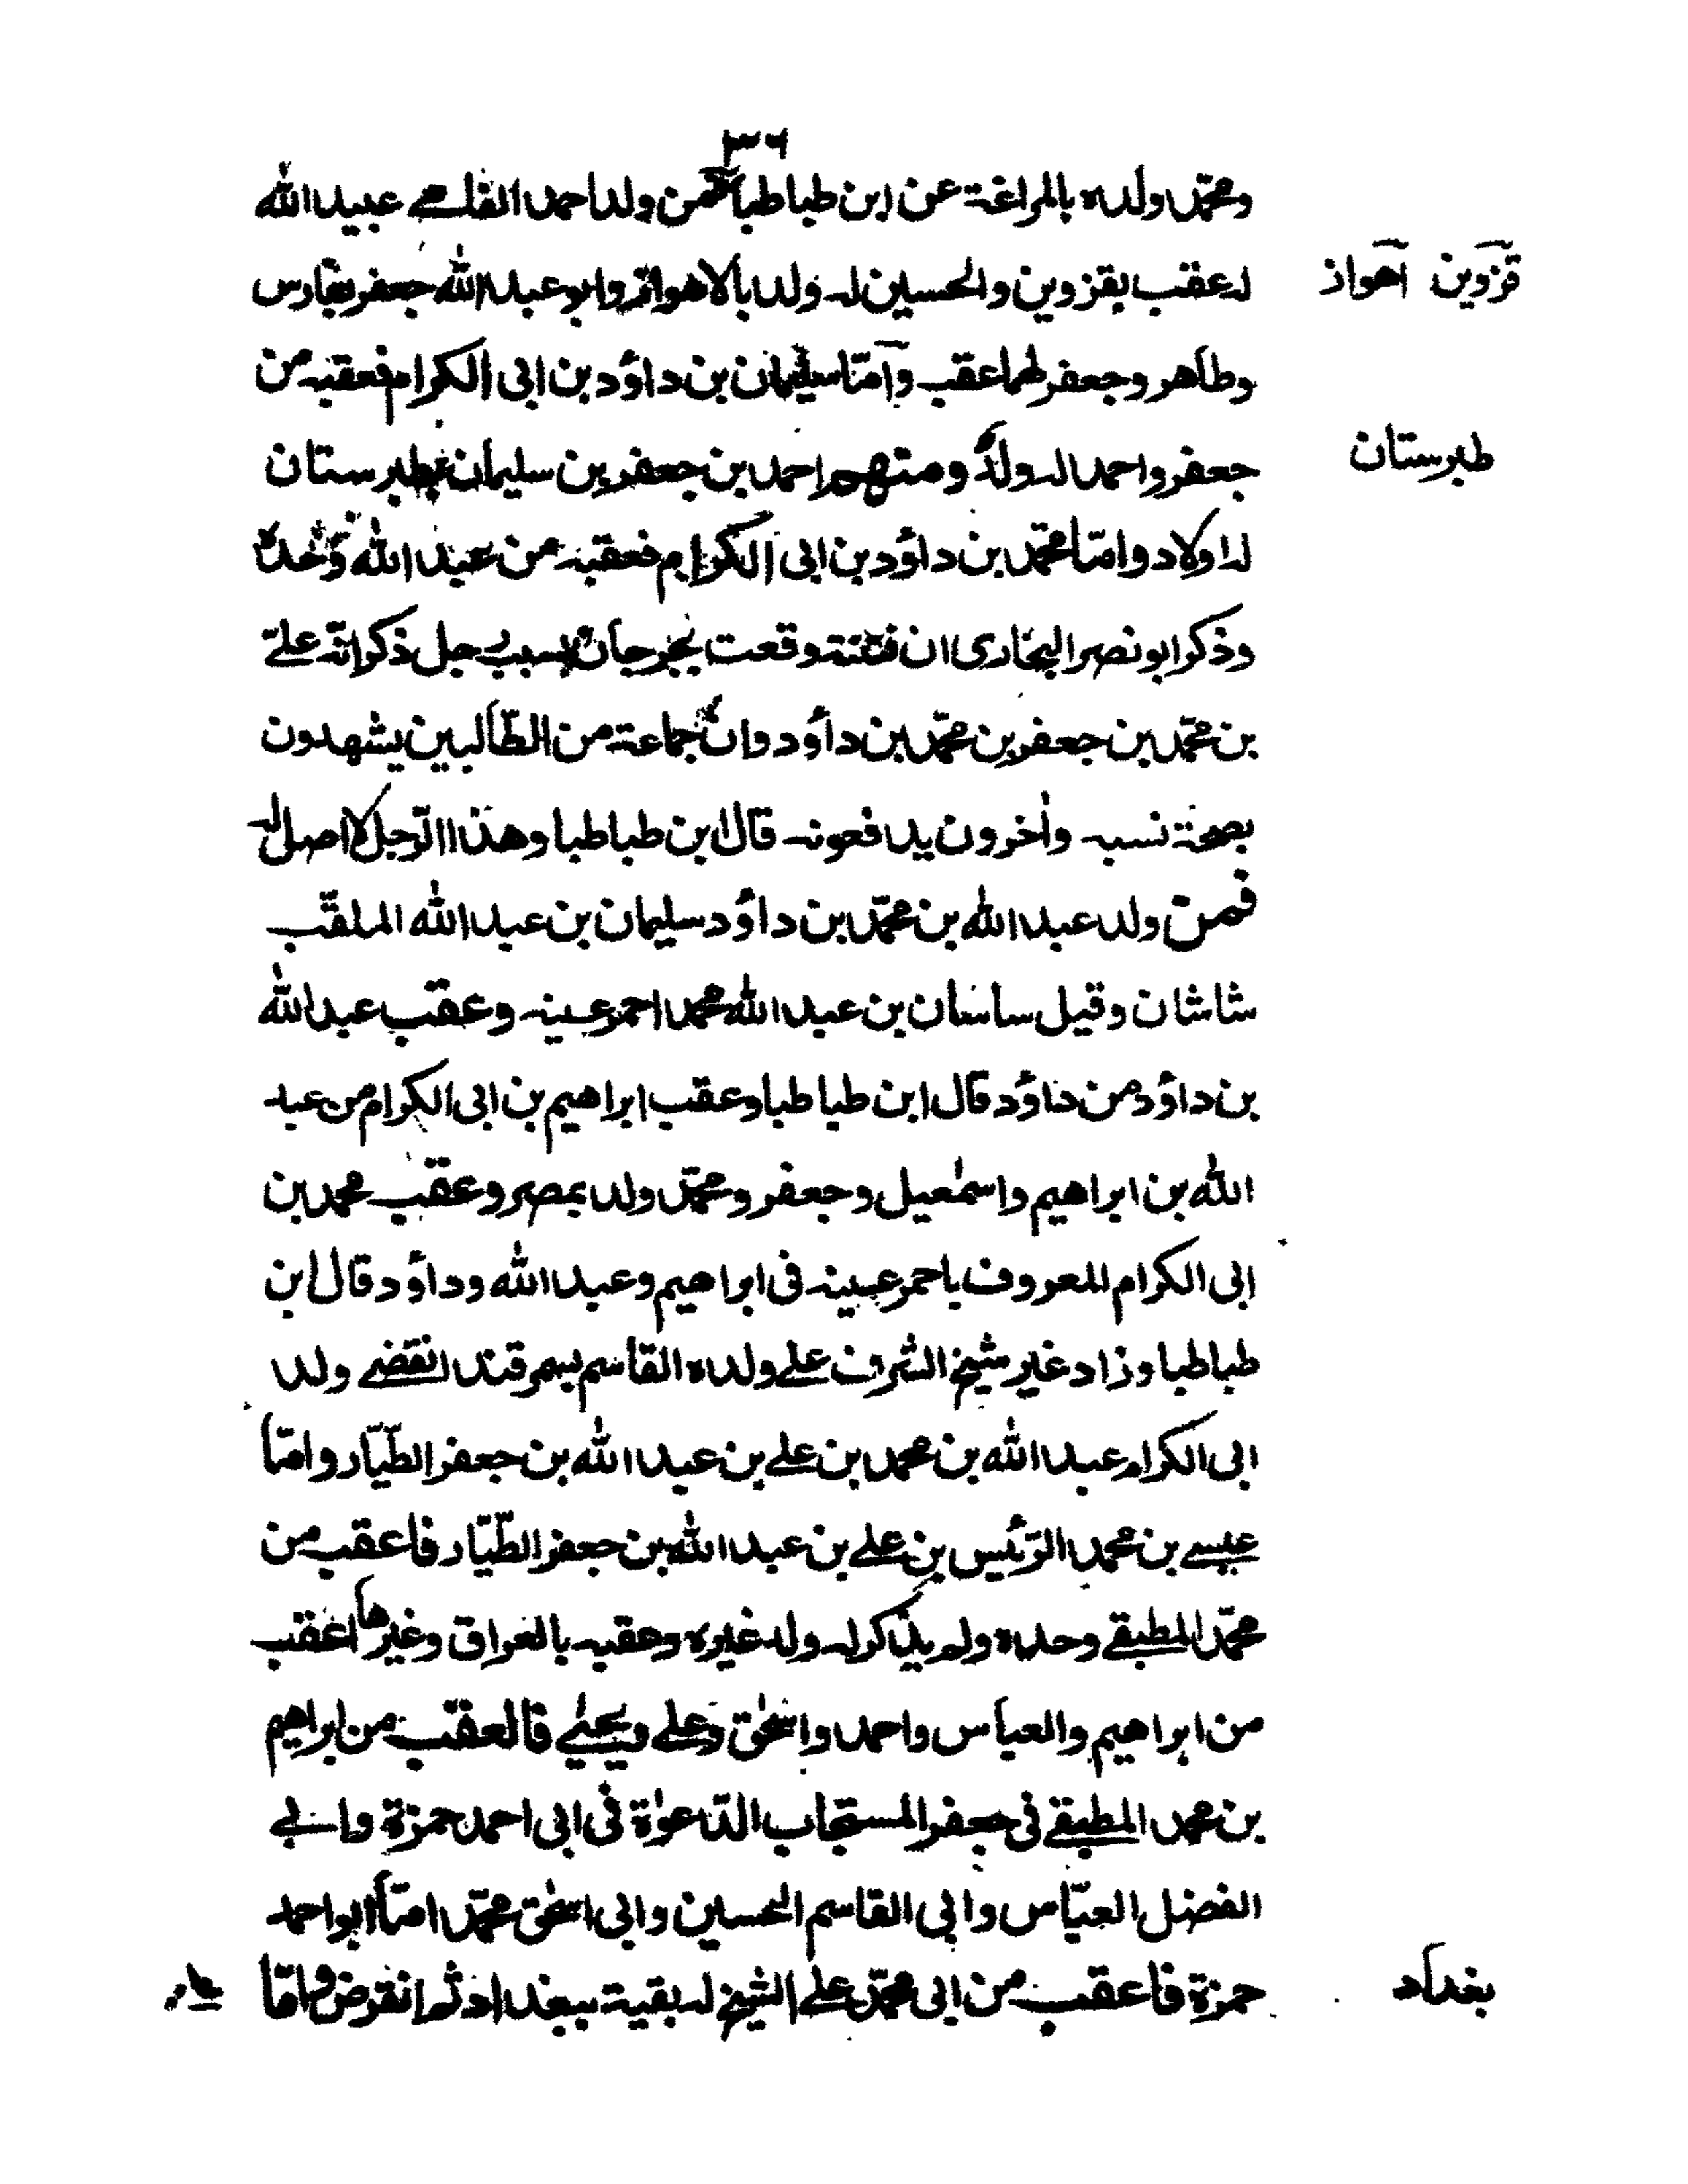 ٣٦
ومحمّد ولده بالمراغة عن ابن طباطبا فمن ولد احمد القاضے عبيد الله
له عقب بقزوين والحسين له ولد بالاهواز وابو عبد الله جعفر بفارس
قزوين اهواز
وطاهر وجعفر لهما عقب وامّا سليمان بن داؤد بن ابى الكرام فعقبه من
جعفر واحمد له ولد ومنهم احمد بن جعفر بن سليمان بطبرستان
طبرستان
له اولاد وامّا محمّد بن داؤد بن ابى الكرام فعقبه من عبد الله وحده
وذكر ابو نصر البخارى ان فتنة وقعت بجرجان بسبب رجل ذكر انّه علے
بن محمّد بن جعفر بن محمّد بن داؤد وانّ جماعة من الطّالبين يشهدون
بصحة نسبه واٰخرون يدافعونه قال ابن طباطبا وهذا الرّجل لا اصل له
فمن ولد عبد الله بن محمّد بن داؤد سليمان بن عبد الله الملقّب
شاشان وقيل ساسان بن عبد الله محمد احمر عينه وعقب عبد الله
بن داؤد من داؤد قال ابن طباطبا وعقب ابراهيم بن ابى الكرام من عبد
الله بن ابراهيم واسمٰعيل وجعفر ومحمّد ولد بمصر وعقب محمد بن
ابى الكرام المعروف باحمر عينه فى ابراهيم وعبد الله وداؤد قال ابن
طباطبا وزاد غير شيخ الشرف علے ولده القاسم بسمرقند انقضے ولد
ابى الكرام عبد الله بن محمد بن علے بن عبد الله بن جعفر الطّيّار وامّا
عيسے بن محمد الرّئيس بن علے بن عبد الله بن جعفر الطّيّار فاعقب من
محمّد المطبقے وحده ولم يذكر له ولد غيره وعقبه بالعراق وغيرها اعقب
من ابراهيم والعباس واحمد واسحٰق وعلے ويحيٰے فالعقب من ابراهيم
بن محمد المطبقے فى جعفر المستجاب الدّعوٰة فى ابى احمد حمزة وابے
الفضل العبّاس وابى القاسم الحسين وابى اسحٰق محمّد امّا ابو احمد
حمزة فاعقب من ابى محمّد علے الشيخ له بقية ببغداد ثم انقرض وامّا
بغداد